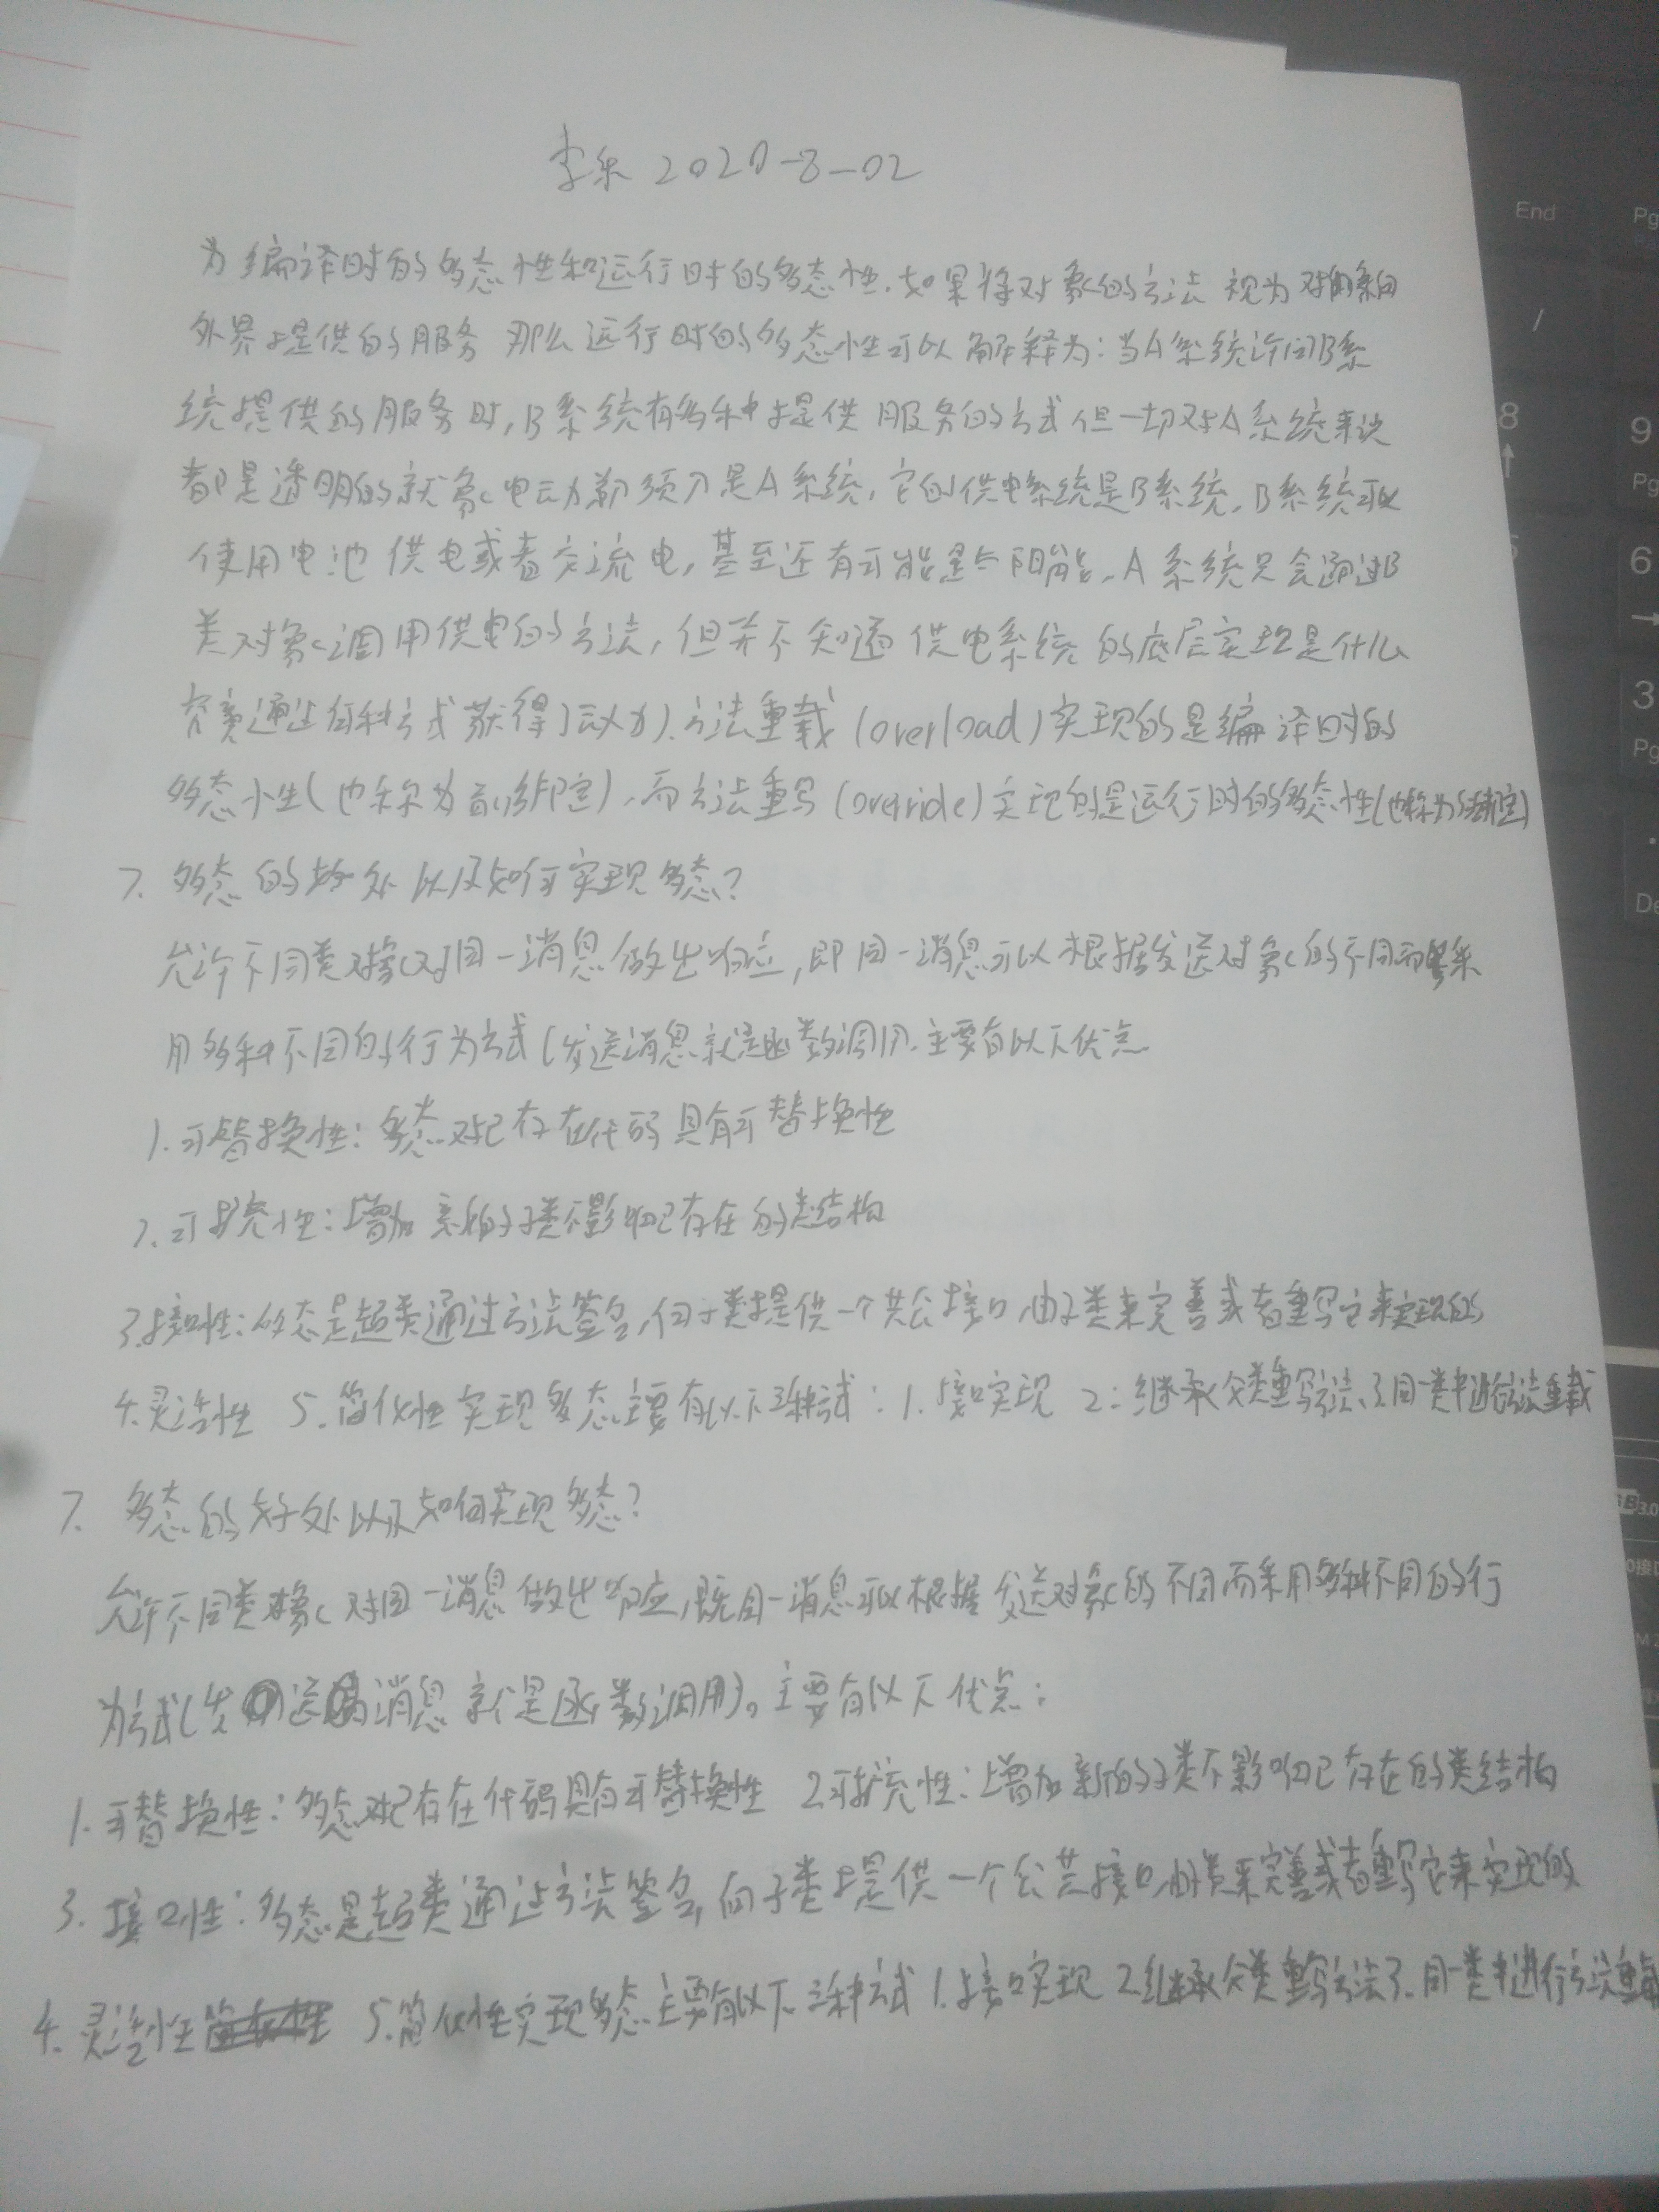 李乐 2020-8-02
为编译时的多态性和运行时的多态性.如果将对象的方法 视为对象向
外界提供的服务 那么运行时的多态性可以解释为:当A系统访问B系
统提供的服务时,B系统有多种提供 服务的方式 但一切对A系统来说
都是透明的就象电动剃须刀是A系统,它的供电系统是B系统,B系统可以
使用电池 供电或者交流电,甚至还有可能是太阳能,A系统只会通过B
类对象调用供电的方法,但并不知道 供电系统的底层实现是什么
究竟通过何种方式获得了动力).方法重载(overload)实现的是编译时的
多态性(也称为前绑定),而方法重写(override)实现的是运行时的多态性(也称为后绑定)
7. 多态的好处以及如何实现多态?
允许不同类对象对同一消息做出响应,即同一消息可以根据发送对象的不同而采
用多种不同的行为方式(发送消息就是函数调用.主要有以下优点
1.可替换性:多态对已存在代码具有可替换性
2.可扩充性:增加 新的子类不影响已存在的类结构
3.接口性:多态是超类通过方法签名,向子类提供一个共公接口,由子类来完善或者重写它来实现的
4.灵活性 5.简化性 实现多态主要有以下三种方式:1.接口实现 2:继承父类重写方法、3.同一类中进行方法重载
7. 多态的好处以及如何实现多态?
允许不同类对象 对同一消息做出响应,既同一消息可以根据发送对象的不同而采用多种不同的行
为方式(发送消息 就是函数调用)。主要有以下优点:
1.可替换性:多态对已存在代码具有可替换性 2.可扩充性:增加新的子类不影响已存在的类结构
3. 接口性:多态是超类通过方法签名,向子类提供一个公共接口,由子类来完善或者重写它来实现的
4. 灵活性 5.简化性实现多态主要有以下三种方式 1.接口实现 2.继承父类重写方法3.同一类中进行方法重载
End
Pg
/
8
9
Pg
6
3
Pg
De
3.0